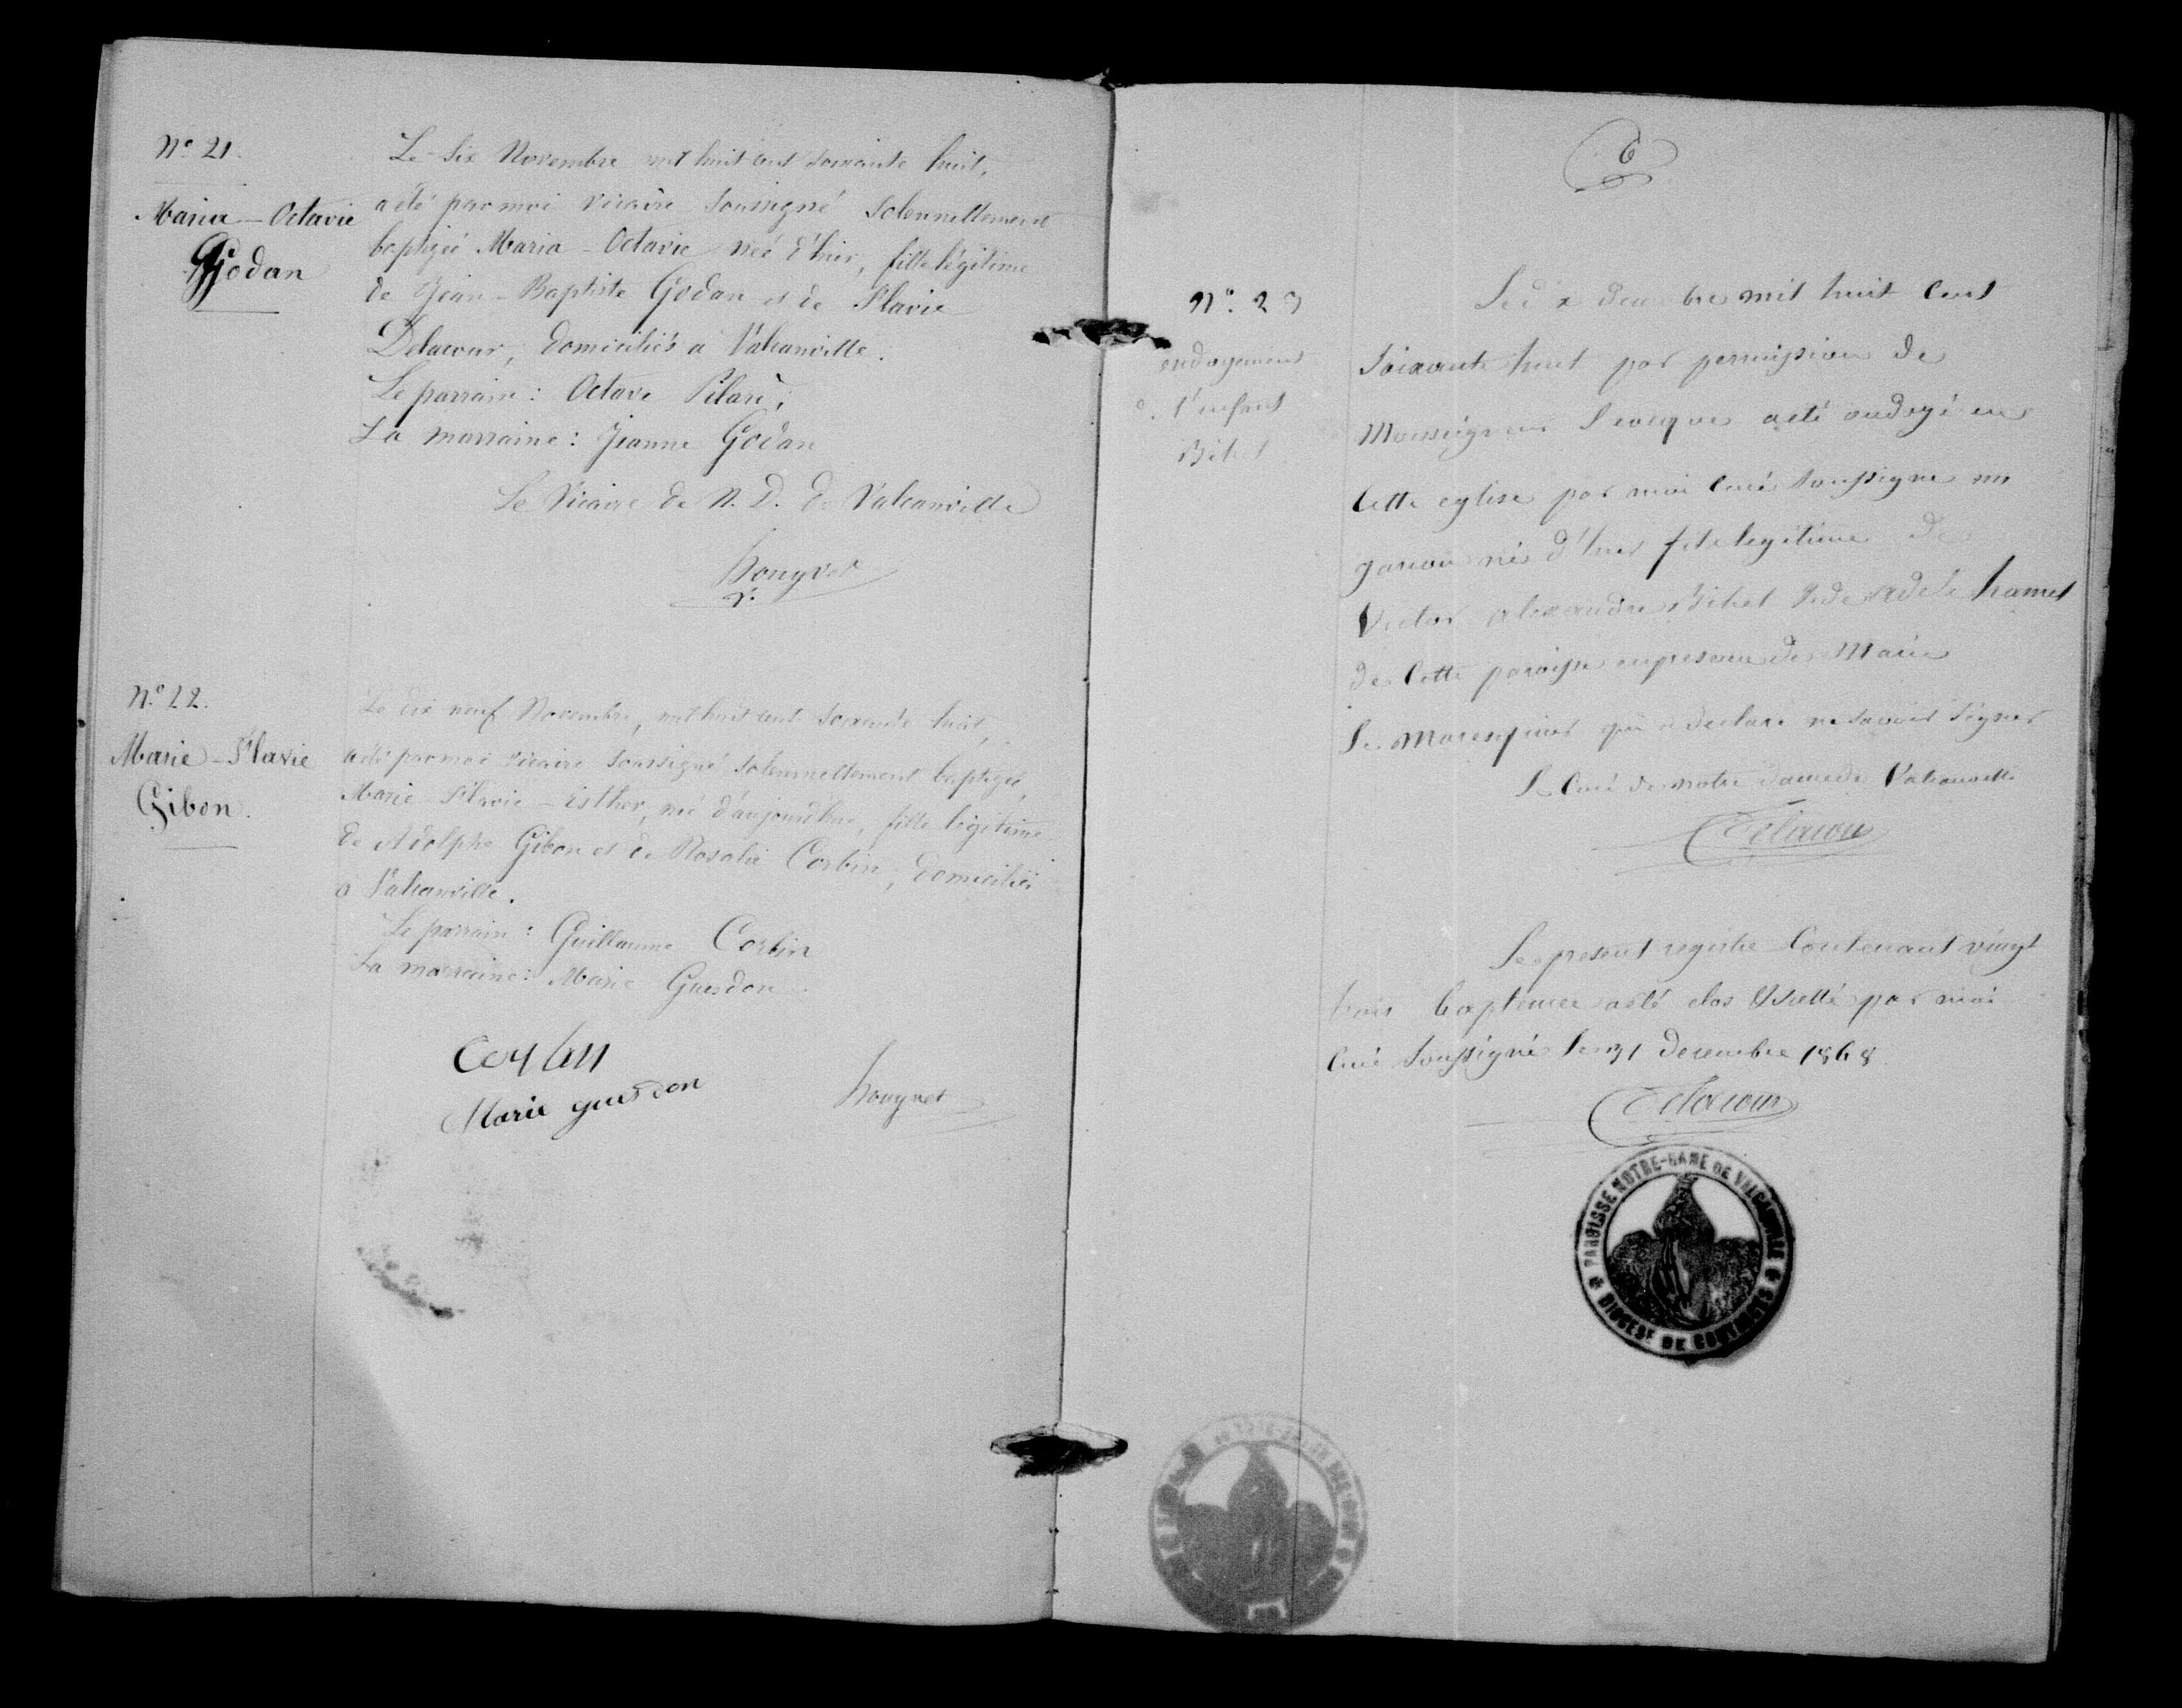 N° 21.
Maria-Octavie
Godan
Le Six Novembre mil huit cent soixante huit,
a été par moi vicaire soussigné solennellement
baptisée Maria-Octavie née d'hier, fille légitime
de Jean-Baptiste Godan et de Flavie
Delacour, domiciliés a Valcanville.
Le parrain: Octave
La marraine: Jeanne Godan
Le Vicaire de N. D. de Valcanville
houyvet
v.
N° 22.
Marie-Flavie
Gibon.
Le dix neuf Novembre, mil huit cent soixante huit,
a été par moi vicaire soussigné solennellement baptisée,
Marie-Flavie-Esther, née d'aujourd'hui, fille légitime
de Adolphe Gibon et de Rosalie Corbin, domiciliés
à Valcanville.
Le parrain: Guillaume Corbin
La marraine: Marie Guesdon.
Corbin
Marie guesdon
houyvet
6
N° 23
ondoyement
de l'enfant
Bihel
Le dix decembre mil huit cent
soixante huit par permission de
Monseigneur l'eveque a été ondoyé en
cette eglise par moi curé soussigné un
garcon né d'hier fils legitime de
Victor alexandre Bihel & de adele hamel
de cette paroisse en presence de Marie
Le qui a declaré ne savoir signer
Le Curé de notre dame de Valcanville
Delacour
Le present registre contenant vingt
trois baptemes a été clos & arreté par moi
curé soussigné le 31 decembre 1868
Delacour
PAROISSE NOTRE-DAME DE VALCANVILLE
DIOCESE DE COUTANCES